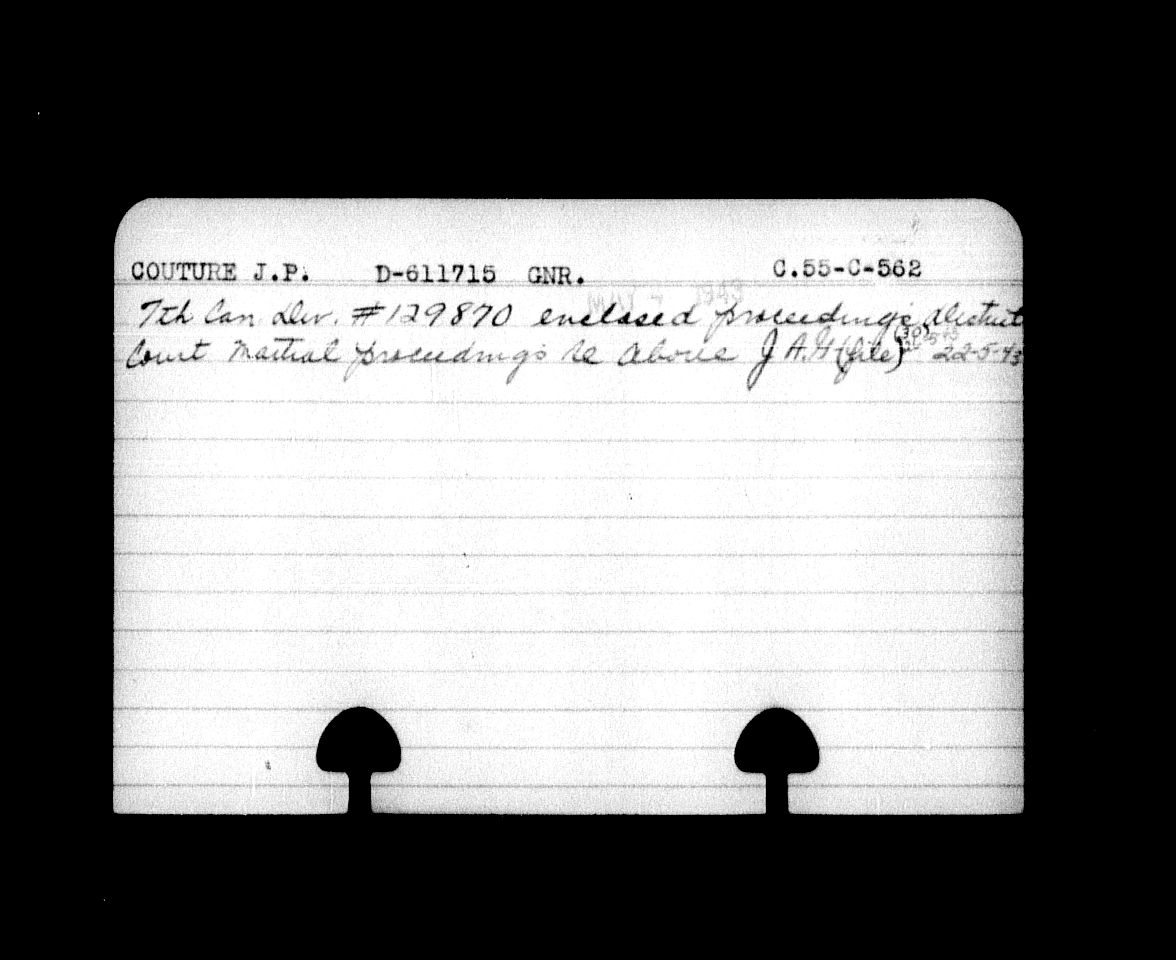 COUTURE J.P. D-611715 GNR. C.55-C-562
7th Can Div. #129870 enclosed proceeding's District
Court Martial proceeding's re above J A.G (file) (30) 22-5-43